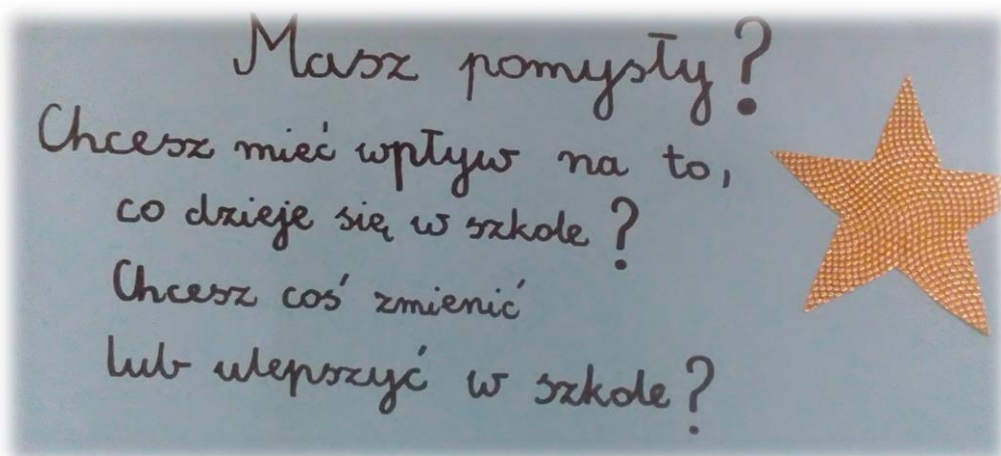 Masz pomysły?
Chcesz mieć wpływ na to,
co dzieje się w szkole?
Chcesz coś zmienić
lub ulepszyć w szkole?